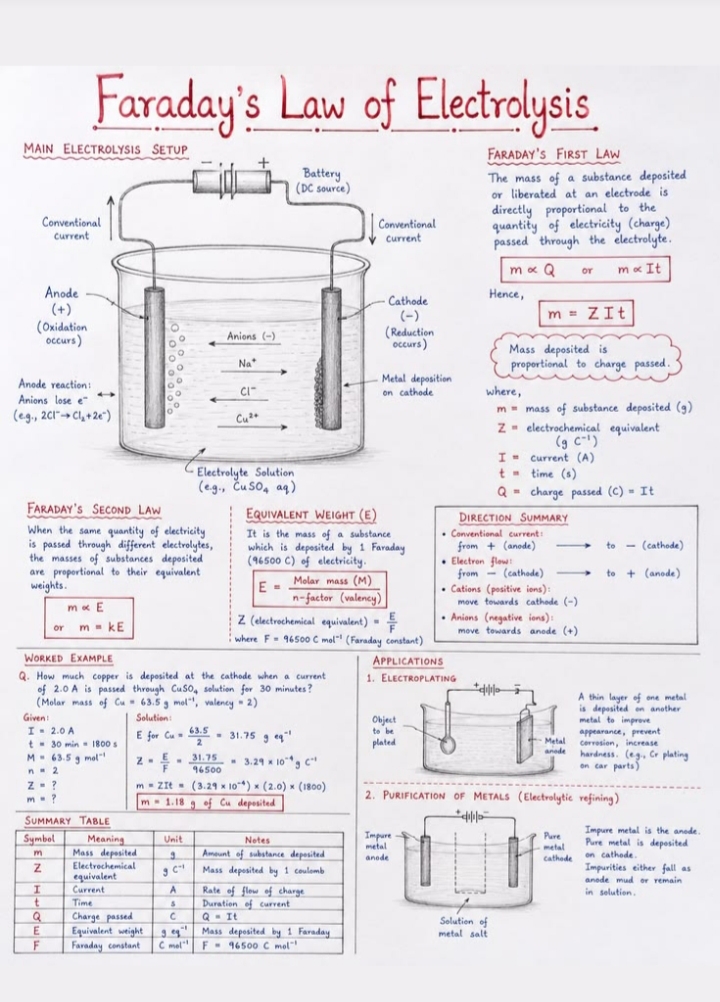 Faraday's Law of Electrolysis
MAIN ELECTROLYSIS SETUP
−
+
Battery
(DC source)
Conventional
current
Conventional
current
Anode
(+)
(Oxidation
occurs)
Cathode
(−)
(Reduction
occurs)
Anions (−)
Na⁺
Cl⁻
Cu²⁺
Anode reaction:
Anions lose e⁻
(e.g., 2Cl⁻→Cl₂+2e⁻)
Metal deposition
on cathode
Electrolyte Solution
(e.g., CuSO₄ aq)
FARADAY'S FIRST LAW
The mass of a substance deposited
or liberated at an electrode is
directly proportional to the
quantity of electricity (charge)
passed through the electrolyte.
m ∝ Q or m ∝ It
Hence,
m = Z I t
Mass deposited is
proportional to charge passed.
where,
m = mass of substance deposited (g)
Z = electrochemical equivalent
(g C⁻¹)
I = current (A)
t = time (s)
Q = charge passed (C) = It
FARADAY'S SECOND LAW
When the same quantity of electricity
is passed through different electrolytes,
the masses of substances deposited
are proportional to their equivalent
weights.
m ∝ E
or m = kE
EQUIVALENT WEIGHT (E)
It is the mass of a substance
which is deposited by 1 Faraday
(96500 C) of electricity.
E = Molar mass (M) / n-factor (valency)
Z (electrochemical equivalent) = E/F
where F = 96500 C mol⁻¹ (Faraday constant)
DIRECTION SUMMARY
• Conventional current:
from + (anode) → to − (cathode)
• Electron flow:
from − (cathode) → to + (anode)
• Cations (positive ions):
move towards cathode (−)
• Anions (negative ions):
move towards anode (+)
WORKED EXAMPLE
Q. How much copper is deposited at the cathode when a current
of 2.0 A is passed through CuSO₄ solution for 30 minutes?
(Molar mass of Cu = 63.5 g mol⁻¹, valency = 2)
Given:
I = 2.0 A
t = 30 min = 1800 s
M = 63.5 g mol⁻¹
n = 2
Z = ?
m = ?
Solution:
E for Cu = 63.5/2 = 31.75 g eq⁻¹
Z = E/F = 31.75/96500 = 3.29 × 10⁻⁴ g C⁻¹
m = ZIt = (3.29 × 10⁻⁴) × (2.0) × (1800)
m = 1.18 g of Cu deposited
SUMMARY TABLE
Symbol Meaning Unit Notes
m Mass deposited g Amount of substance deposited
Z Electrochemical equivalent g C⁻¹ Mass deposited by 1 coulomb
I Current A Rate of flow of charge
t Time s Duration of current
Q Charge passed C Q = It
E Equivalent weight g eq⁻¹ Mass deposited by 1 Faraday
F Faraday constant C mol⁻¹ F = 96500 C mol⁻¹
APPLICATIONS
1. ELECTROPLATING
Object
to be
plated
Metal
anode
A thin layer of one metal
is deposited on another
metal to improve
appearance, prevent
corrosion, increase
hardness. (e.g., Cr plating
on car parts)
2. PURIFICATION OF METALS (Electrolytic refining)
Impure
metal
anode
Pure
metal
cathode
Solution of
metal salt
Impure metal is the anode.
Pure metal is deposited
on cathode.
Impurities either fall as
anode mud or remain
in solution.